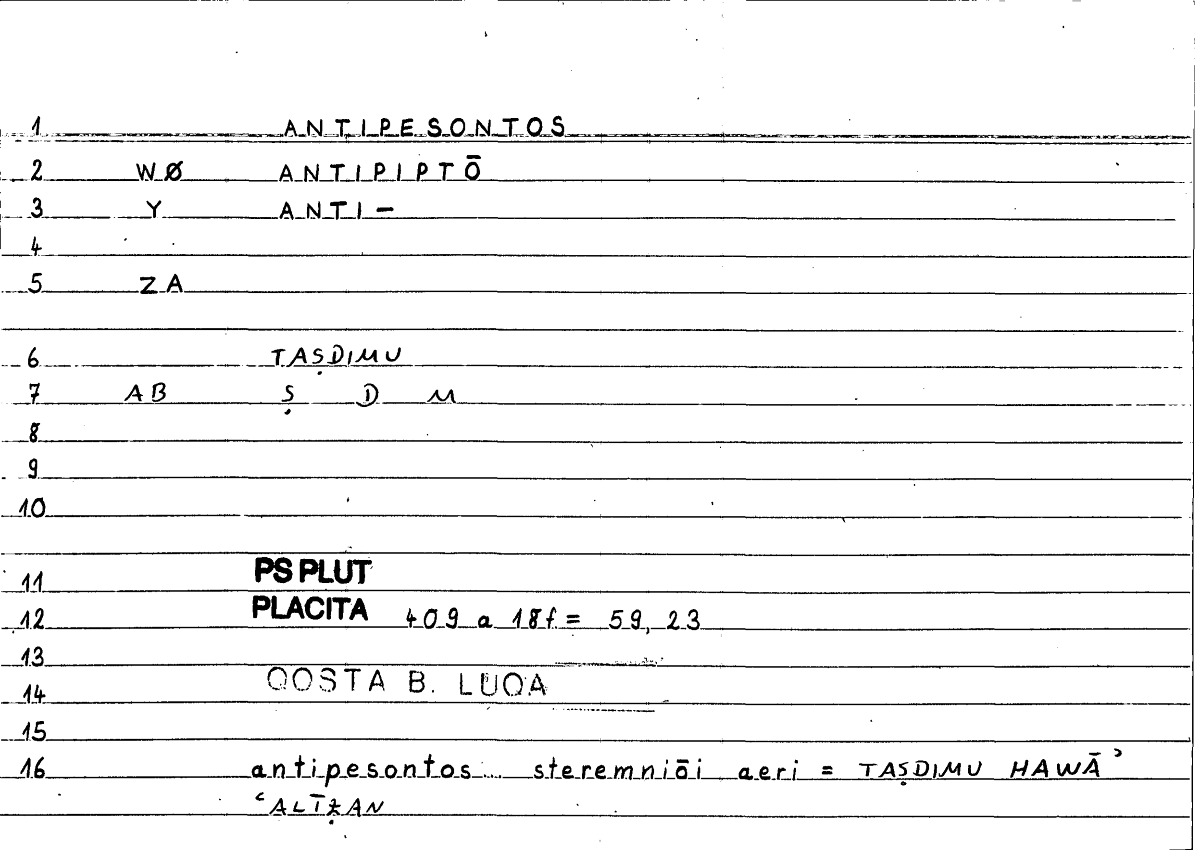 1 ANTIPESONTOS
2 WØ ANTIPIPTŌ
3 Y ANTI-
4
5 ZA
6 TAṢDIMU
7 AB Ṣ D M
8
9
10
11 PS PLUT
12 PLACITA 409 a 18f = 59, 23
13
14 QOSTA B. LUQA
15
16 antipesontos... steremniōi aeri = TAṢDIMU HAWĀʾ
ʿALĪẒAN